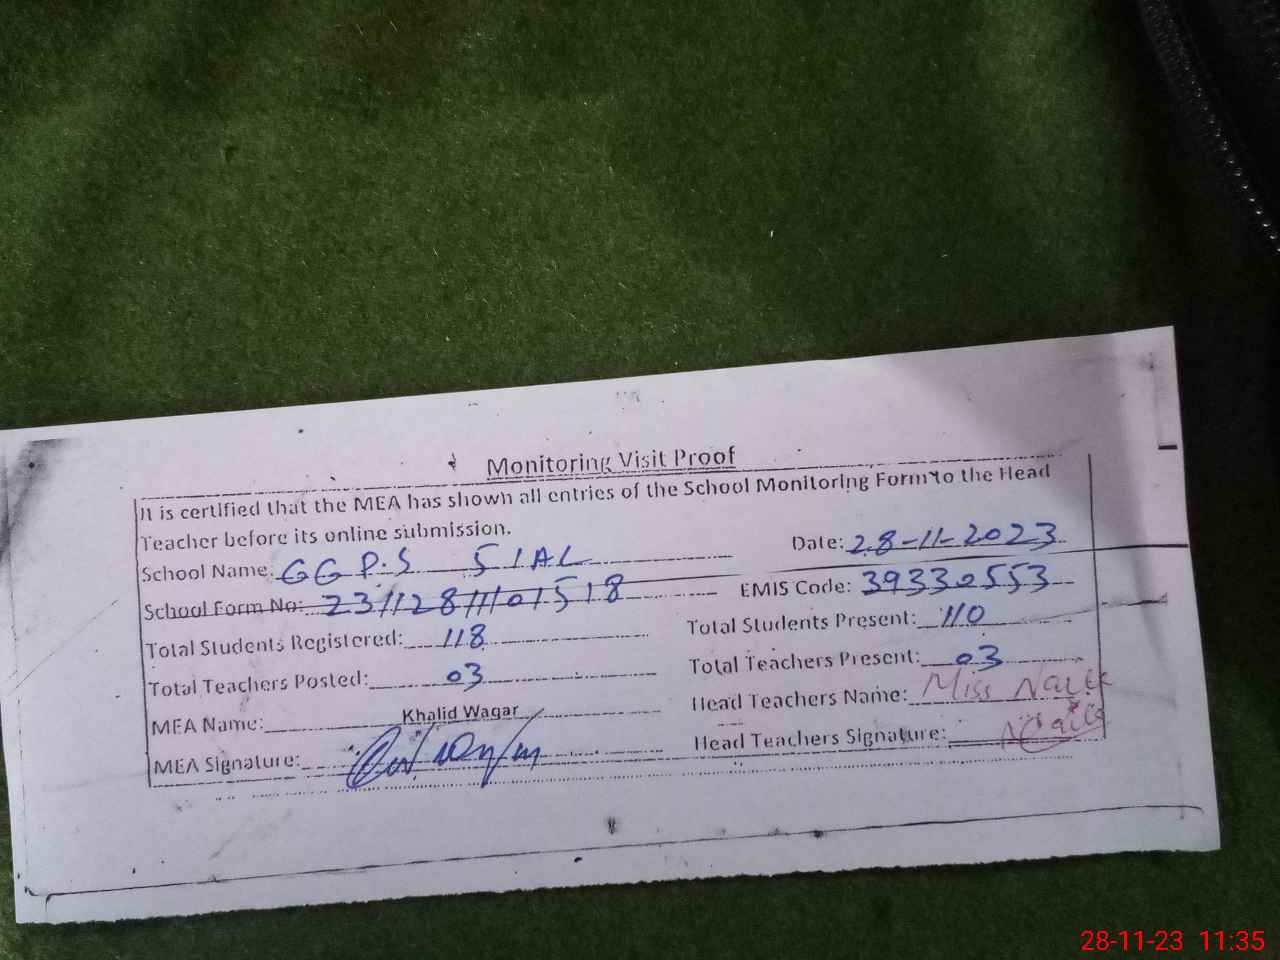 Monitoring Visit Proof
It is certified that the MEA has shown all entries of the School Monitoring Form to the Head
Teacher before its online submission.
School Name: GGP.S SIAL Date: 28-11-2023
School Form No: EMIS Code: 39330553
Total Students Registered: 118 Total Students Present: 110
Total Teachers Posted: 03 Total Teachers Present: 03
MEA Name: Khalid Waqar Head Teachers Name: Miss
MEA Signature: Head Teachers Signature:
28-11-23 11:35